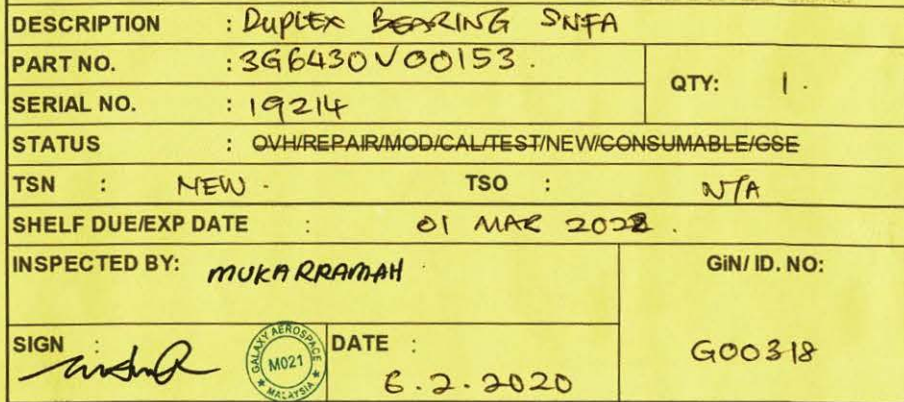 DESCRIPTION : DUPLEX BEARING SNFA
PART NO. : 3G6430V00153.
QTY: 1.
SERIAL NO. : 19214
STATUS : OVH/REPAIR/MOD/CAL/TEST/NEW/CONSUMABLE/GSE
TSN : NEW.
TSO : N/A
SHELF DUE/EXP DATE : 01 MAR 2022.
INSPECTED BY: MUKARRAMAH
GiN/ ID. NO:
G00318
SIGN :
GALAXY AEROSPACE
M021
★ MALAYSIA ★
DATE : 6.2.2020